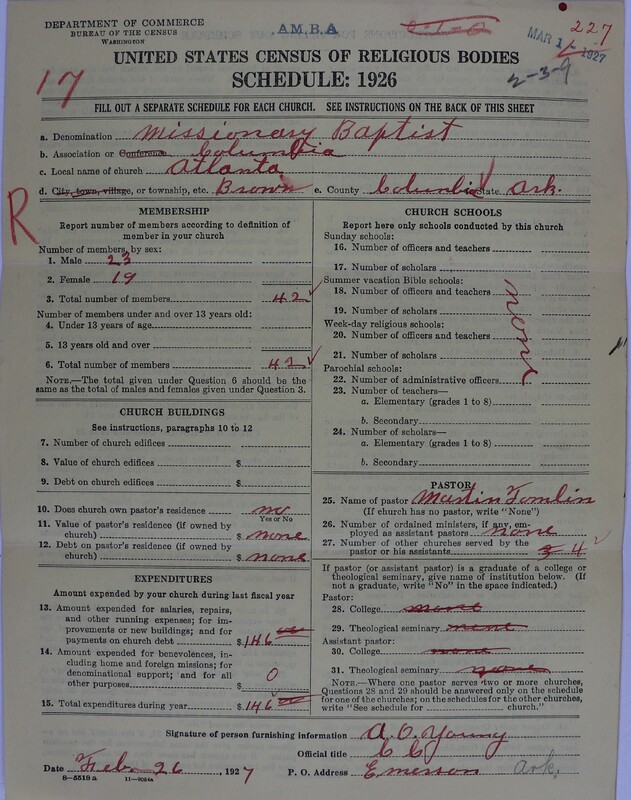 DEPARTMENT OF COMMERCE
BUREAU OF THE CENSUS
WASHINGTON
A.M.B.A
227
MAR 1 1927
2-3-9
17
UNITED STATES CENSUS OF RELIGIOUS BODIES
SCHEDULE: 1926
FILL OUT A SEPARATE SCHEDULE FOR EACH CHURCH. SEE INSTRUCTIONS ON THE BACK OF THIS SHEET
a. Denomination Missionary Baptist
b. Association or Conference Columbia
c. Local name of church Atlanta
d. City, town, village, or township, etc. Brown e. County Columbia State Ark.
R
MEMBERSHIP
Report number of members according to definition of
member in your church
Number of members, by sex:
1. Male 23
2. Female 19
3. Total number of members 42
Number of members under and over 13 years old:
4. Under 13 years of age
5. 13 years old and over
6. Total number of members 42
NOTE.—The total given under Question 6 should be the
same as the total of males and females given under Question 3.
CHURCH BUILDINGS
See instructions, paragraphs 10 to 12
7. Number of church edifices
8. Value of church edifices $
9. Debt on church edifices $
10. Does church own pastor's residence no
Yes or No
11. Value of pastor's residence (if owned by
church) $ none
12. Debt on pastor's residence (if owned by
church) $ none
EXPENDITURES
Amount expended by your church during last fiscal year
13. Amount expended for salaries, repairs,
and other running expenses; for im-
provements or new buildings; and for
payments on church debt $ 146
14. Amount expended for benevolences, in-
cluding home and foreign missions; for
denominational support; and for all
other purposes $ 0
15. Total expenditures during year $ 146
CHURCH SCHOOLS
Report here only schools conducted by this church
Sunday schools:
16. Number of officers and teachers
17. Number of scholars
Summer vacation Bible schools:
18. Number of officers and teachers
19. Number of scholars
none
Week-day religious schools:
20. Number of officers and teachers
21. Number of scholars
Parochial schools:
22. Number of administrative officers
23. Number of teachers—
a. Elementary (grades 1 to 8)
b. Secondary
24. Number of scholars—
a. Elementary (grades 1 to 8)
b. Secondary
PASTOR
25. Name of pastor Martin Tomlin
(If church has no pastor, write "None")
26. Number of ordained ministers, if any, em-
ployed as assistant pastors none
27. Number of other churches served by the
pastor or his assistants 3 4
If pastor (or assistant pastor) is a graduate of a college or
theological seminary, give name of institution below. (If
not a graduate, write "No" in the space indicated.)
Pastor:
28. College none
29. Theological seminary none
Assistant pastor:
30. College none
31. Theological seminary none
NOTE.—Where one pastor serves two or more churches,
Questions 28 and 29 should be answered only on the schedule
for one of the churches; on the schedules for the other churches,
write "See schedule for church."
Signature of person furnishing information A. C. Young
Official title C C
Date Feb. 26, 1927 P. O. Address Emerson Ark.
8—5518 a 11—9084a